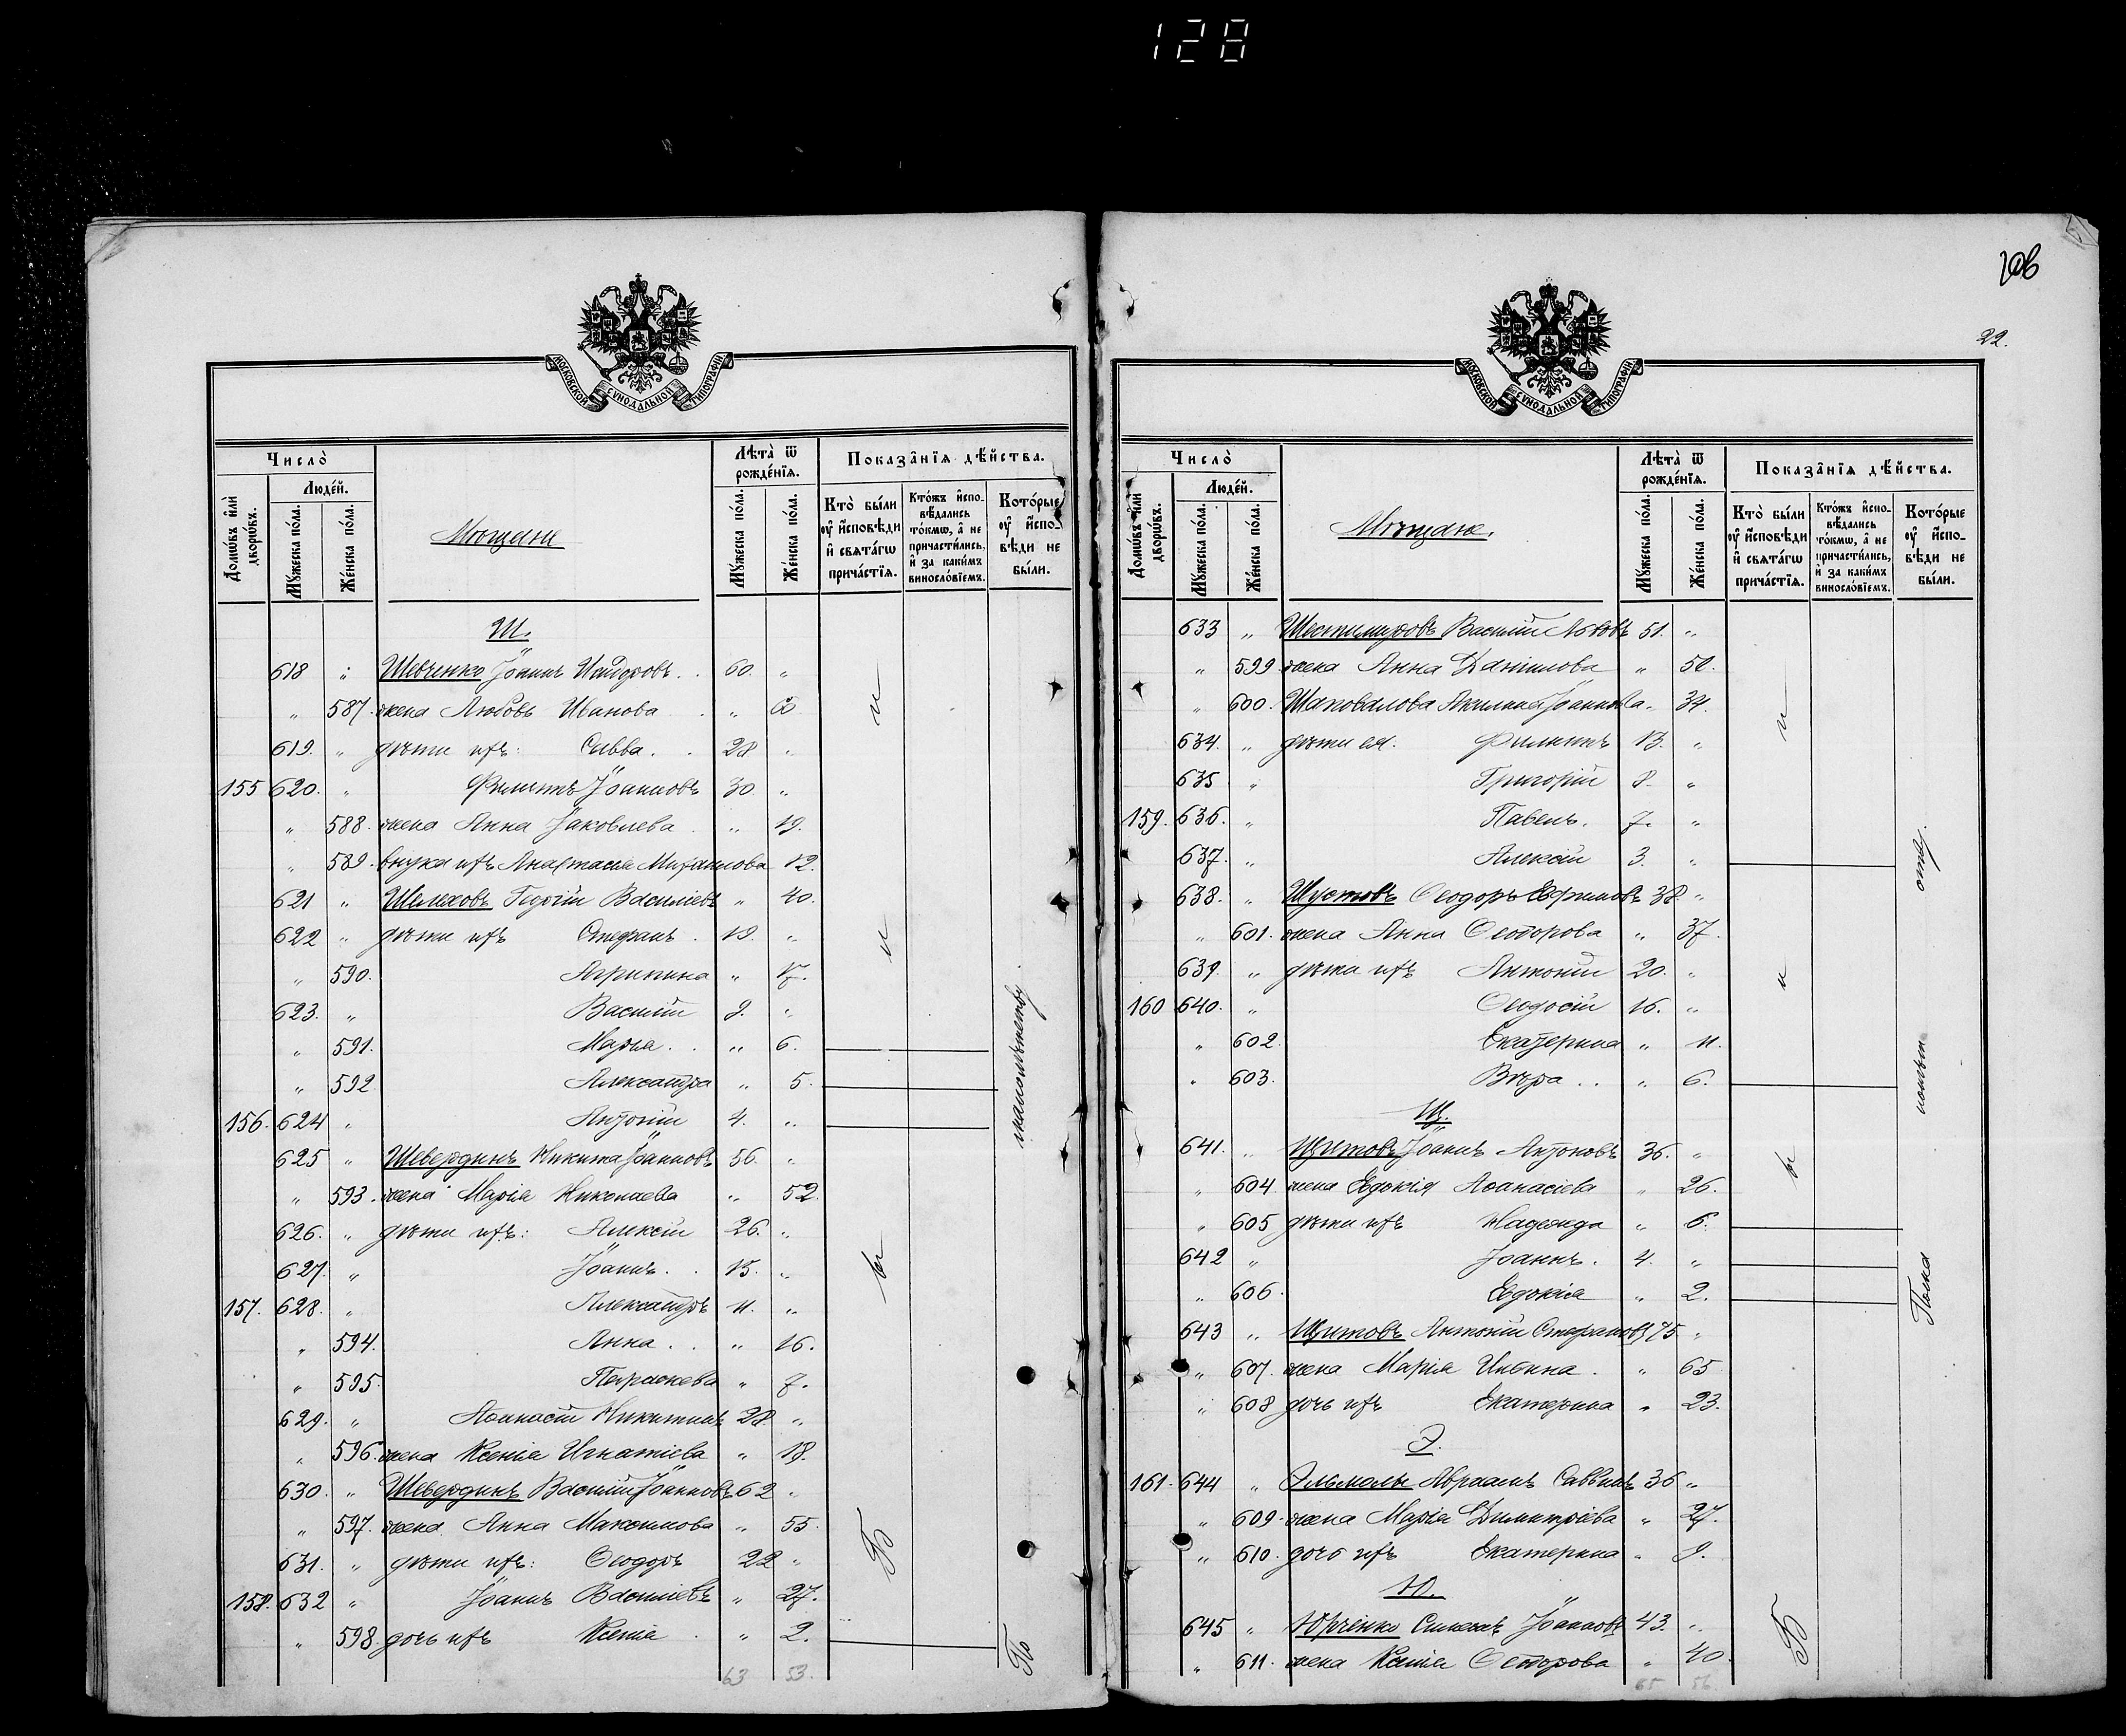 128
106
22.
МОСКОВСКОЙ СѴНОДАЛЬНОЙ ТИПОГРАФІИ
Число̀
Домѡ́въ и҆лѝ дворѡ́въ.
Люде́й.
Мꙋ́жеска по́ла.
Же́нска по́ла.
Мѣщане
Лѣта̀ ѿ рожде́нїѧ.
Мꙋ́жеска по́ла.
Же́нска по́ла.
Показа̂нїѧ дѣ́йства.
Кто̀ бы́ли ᲂу҆ и҆́сповѣди и҆ свѧта́гѡ прича́стїѧ.
Кто́жъ и҆сповѣ́дались то́кмѡ, а҆ не причасти́лись, и҆ за каки́мъ винослѡ́вїемъ.
Кото́рые ᲂу҆ и҆́сповѣди не бы́ли.
Ш.
618 „ Шевченко Іоаннъ Исидоровъ . . 60. „
„ 587. жена Любовь Иванова . „ 60
619. „ дѣти ихъ: Савва . . 28 „
155 620. „ Филиппъ Іоанновъ 30 „
„ 588. жена Анна Іаковлева . „ 19.
„ 589. внука ихъ Анастасія Михаилова 12.
621 „ Шелеховъ Георгій Василіевъ „ 40.
622 „ дѣти ихъ Стефанъ . 19. „
„ 590. Агрипина „ 17.
623. „ Василій 9. „
„ 591. Марѳа . . „ 6.
„ 592. Александра „ 5.
156. 624 „ Антоній 4. „
625 „ Шевердинъ Никита Іоанновъ 56. „
„ 593. жена Марія Николаева „ 52.
626. „ дѣти ихъ: Алексій 26. „
627. „ Іоаннъ . . 15. „
157. 628. „ Александръ 11. „
„ 594. Анна . . „ 16.
„ 595. Параскева „ 7.
629. „ Аѳанасій Никитинъ 28 „
„ 596. жена Ксенія Игнатіева „ 18.
630. „ Шевердинъ Василій Іоанновъ 62 „
„ 597. жена Анна Максимова „ 55.
631. „ дѣти ихъ: Ѳеодоръ 22 „
158. 632 „ Іоаннъ Василіевъ „ 27.
„ 598. дочь ихъ Ксенія . „ 2.
63 53.
Б ы и и
По малолѣтству.
МОСКОВСКОЙ СѴНОДАЛЬНОЙ ТИПОГРАФІИ
Число̀
Домѡ́въ и҆лѝ дворѡ́въ.
Люде́й.
Мꙋ́жеска по́ла.
Же́нска по́ла.
Мѣщане.
Лѣта̀ ѿ рожде́нїѧ.
Мꙋ́жеска по́ла.
Же́нска по́ла.
Показа̂нїѧ дѣ́йства.
Кто̀ бы́ли ᲂу҆ и҆́сповѣди и҆ свѧта́гѡ прича́стїѧ.
Кто́жъ и҆сповѣ́дались то́кмѡ, а҆ не причасти́лись, и҆ за каки́мъ винослѡ́вїемъ.
Кото́рые ᲂу҆ и҆́сповѣди не бы́ли.
633 „ Василій 51. „
„ 599 жена Анна Даніилова „ 50.
„ 600. Шаповалова Акилина Іоаннова „ 34.
634. „ дѣти ея. Филиппъ 13. „
635 „ Григорій 8. „
159. 636. „ Павелъ . 7. „
637. „ Алексій 3. „
638. „ Шустовъ Ѳеодоръ Ефимовъ 38 „
„ 601. жена Анна Ѳеодорова „ 37.
639. „ дѣти ихъ Антоній 20. „
160 640. „ Ѳеодосій 16. „
„ 602. Екатерина „ 11.
„ 603. Вѣра . . „ 6.
Щ.
641. „ Щитовъ Іоаннъ Антоновъ 36. „
„ 604 жена Евдокія Аѳанасіева „ 26.
„ 605 дѣти ихъ Надежда „ 6.
642 „ Іоаннъ . 4. „
„ 606. Евдокія „ 2.
643 „ Щитовъ Антоній Стефановъ 75 „
„ 607. жена Марія Ильина . „ 65
„ 608 дочь ихъ Екатерина „ 23.
Э.
161. 644 „ Авраамъ Саввинъ 36 „
„ 609. жена Марія Димитріева „ 27.
„ 610. дочь ихъ Екатерина „ 9.
Ю.
645 „ Юрченко Іоанновъ 43. „
„ 611. жена Ксенія Ѳеодорова „ 40.
65 56
Б ы и и